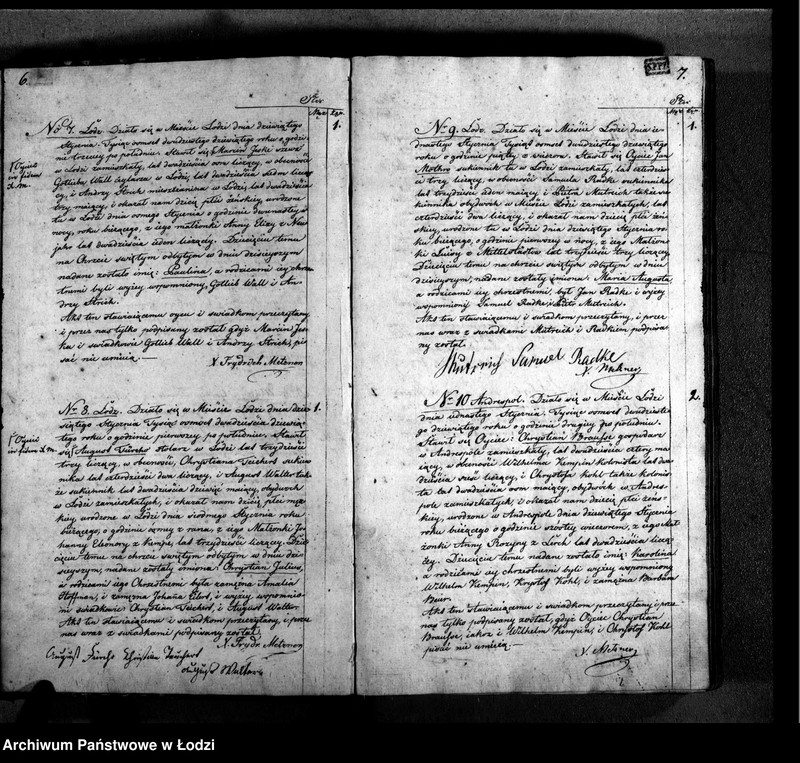 6.
No 7. Łódz. Działo się w Mieście Łodzi dnia dziewiątego
Stycznia Tysiąc osmset dwudziestego dziewiątego roku o godzi-
nie trzeciey po południu. Stawił się Marcin
w Łodzi zamieszkały, lat dwadzieścia osm liczący, w obecności
Gotlieb Wall w Łodzi, lat dwadzieścia siedm liczą-
cy, i Andrzy mieszkanina w Łodzi, lat dwadzieścia
trzy maiący, i okazał nam dziecię płci żeńskiey, urodzone
tu w Łodzi dnia osmego Stycznia o godzinie dwunastey w
nocy, roku bieżącego, z iego małżonki Anny Elizy z
lat dwadzieścia ieden liczącey. Dziecięciu temu
na Chrzcie świętym odbytym w dniu dzisieyszym
nadane zostało imię: Paulina, a rodzicami iey chrze-
stnemi byli wyżey wspomniony, Gotlieb Wall i An-
drzy
Akt ten stawiaiącemu oycu i świadkom przeczytany
i przez nas tylko podpisany został gdyż Marcin
i świadkowie Gotlieb Wall i Andrzy pi-
sać nie umieią.—
X Frydrich Metzner
1.
No 8. Łódz. Działo się w Mieście Łodzi dnia dzie-
siątego Stycznia Tysiąc osmset dwudziestego dziewią-
tego roku o godzinie pierwszey po południu. Stawił
się August stolarz w Łodzi lat trzydzieści
trzy liczący, w obecności, Chrystiana Teichert sukien-
nika lat czterdzieści dwa liczący, i August Walter tak-
że sukiennik lat dwadzieścia dziewięć maiący, obydwóch
w Łodzi zamieszkałych, i okazał nam dziecię płci męz-
kiey, urodzone w Łodzi dnia siódmego Stycznia roku
bieżącego, o godzinie osmey z rana, z iego Małżonki Jo-
hanny Eleonory, z lat trzydzieści liczącey. Dzie-
cięciu temu na chrzcie świętym odbytym w dniu dzi-
sieyszym, nadane zostały imiona: Chrystian Julius,
a rodzicami iego Chrzestnemi była zamężna Amalia
Hoffman, i zamężna Johana Eilert, i wyżey wspomnio-
ni świadkowie: Chrystian Teichert, i August Walter
Akt ten stawiaiącemu i świadkom przeczytany, i przez
nas wraz z świadkami podpisany został.
X. Frydr. Metzner
August Christian Teichert
August Walter
1.
7.
No 9. Łódz. Działo się w Mieście Łodzi dnia ie-
denastego Stycznia Tysiąc osmset dwudziestego dziewiątego
roku o godzinie piątey z wieczora. Stawił się Oyciec Jan
sukiennik tu w Łodzi zamieszkały, lat czterdzie-
ści trzy liczący, w obecności Samuela Radke sukiennika
lat trzydzieści ieden maiący, i takze su-
kiennika obydwóch w Mieście Łodzi zamieszkałych, lat
czterdzieści dwa liczący, i okazał nam dziecię płci żeń-
skiey, urodzone tu w Łodzi dnia dziewiątego Stycznia ro-
ku bieżącego, o godzinie pierwszey w nocy, z iego Małżon-
ki Luizy z lat trzydzieści trzy liczącey,
Dziecięciu temu na chrzcie świętym odbytym w dniu
dzisieyszym, nadane zostały imiona: Maria Augusta
a rodzicami iey chrzestnemi, był Jan Radke i wyżey
wspomnioni Samuel Radke,
Akt ten stawiaiącemu i świadkom przeczytany, i przez
nas wraz z świadkami i Radkiem podpisa-
ny został.
Samuel Radke
X. Metzner
1.
No 10 Andrespol. Działo się w Mieście Łodzi
dnia iednastego Stycznia Tysiąc osmset dwudzieste-
go dziewiątego roku o godzinie drugiey po południu.
Stawił się Oyciec: Chrystian Brausse gospodarz
w Andrespolu zamieszkały, lat dwadzieścia cztery ma-
iący, w obecności Wilhelma Kempin Kolonista lat dwa-
dzieścia sześć liczący, i Chrystofa Kohl także Kolonis-
ta lat dwadzieścia osm maiący, obydwóch w Andres-
polu zamieszkałych, i okazał nam dziecię płci żeń-
skiey, urodzone w Andrespolu dnia dziewiątego Stycznia
roku bieżącego o godzinie szóstey wieczorem, z iego Mał-
żonki Anny Rozyny z Lorch lat dwadzieścia liczą-
cey. Dziecięciu temu nadane zostało imię: Karolina.
a rodzicami iey chrzestnemi byli wyżey wspomnieni
Wilhelm Kempin, Krystof Kohl, i zamężna Barbara
Beier.
Akt ten stawiaiącemu i świadkom przeczytany i przez
nas tylko podpisany został, gdyż Oyciec Chrystian
Brausse, iakoż i Wilhelm Kempin, i Chrystof Kohl
pisać nie umieią.—
X. Metzner
2.
Archiwum Państwowe w Łodzi